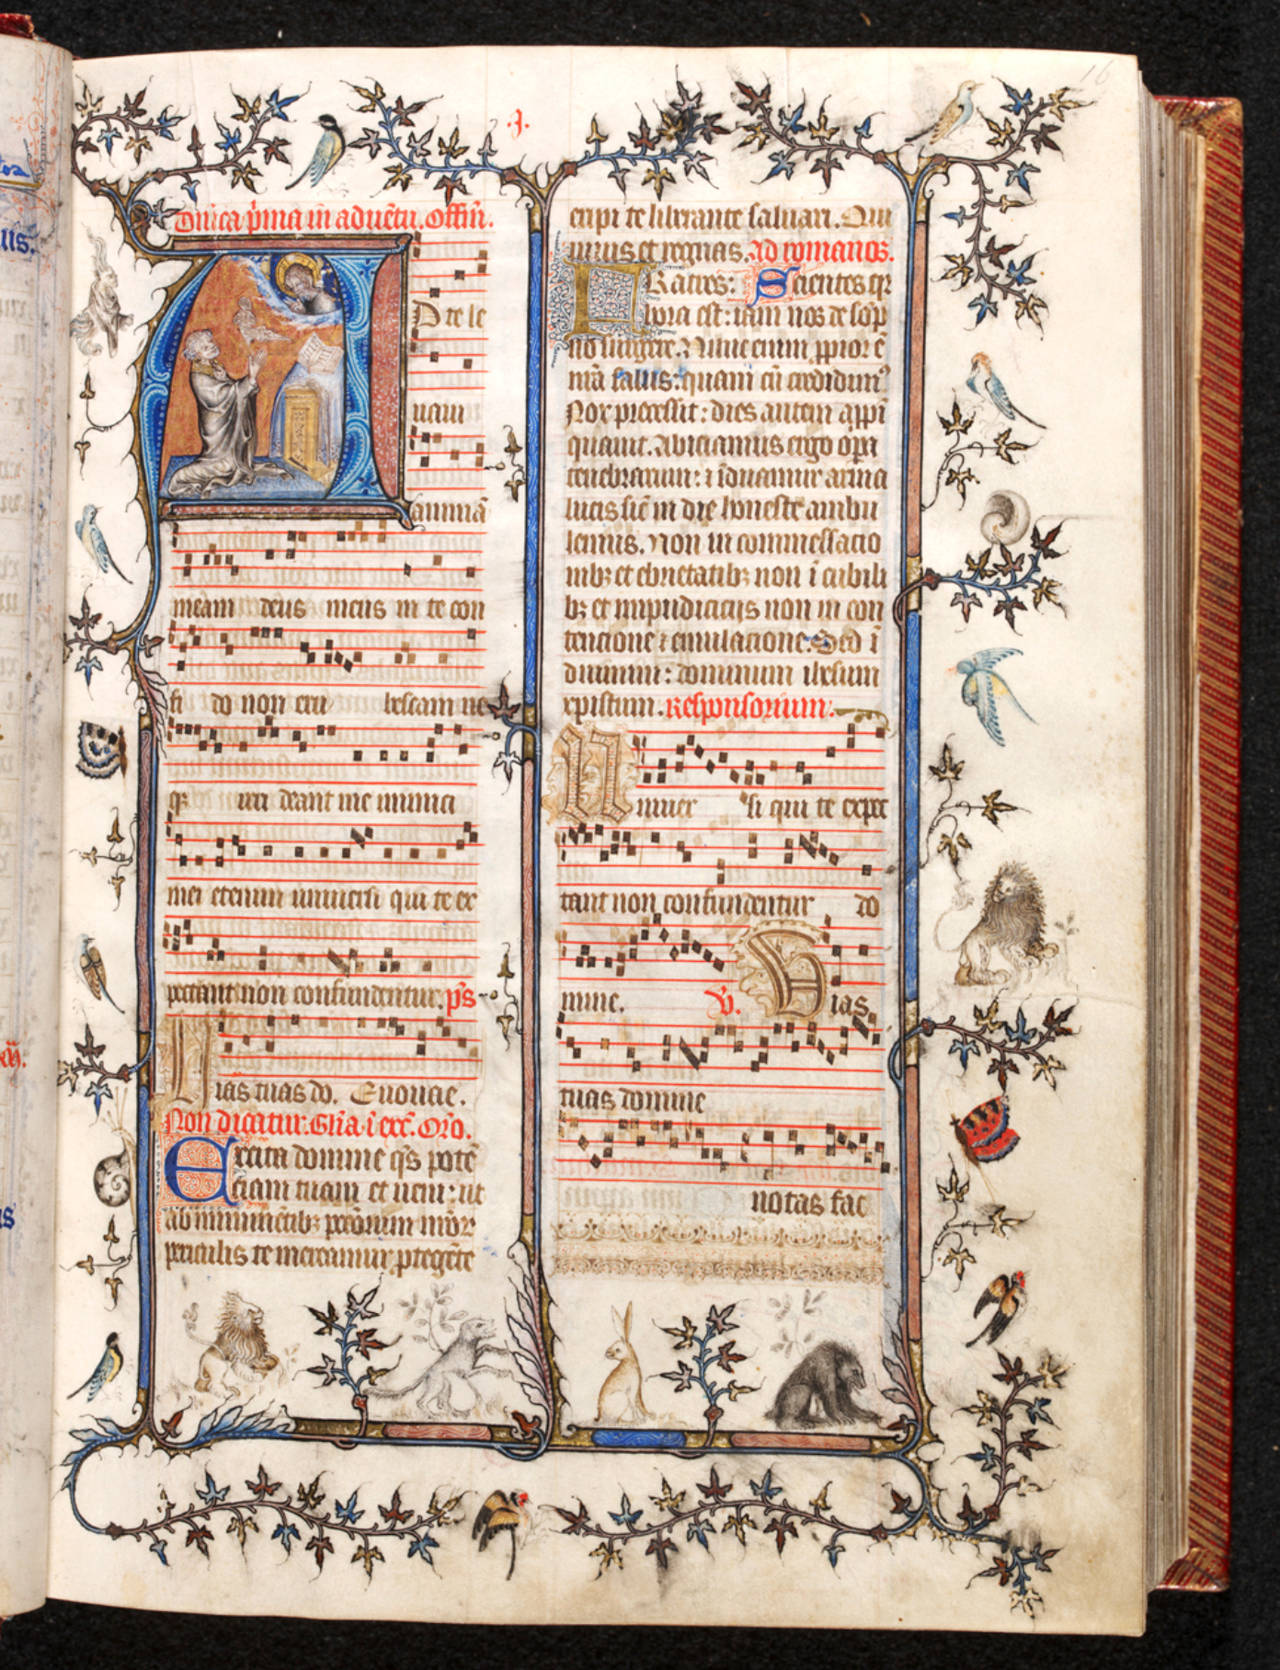 16
.j.
Dn̄ica p̄ma in aduētu. Offin̄.
D te le
uaui
animā
meam deus meus in te con
fi do non eru bescam ne
q̄ irri deant me inimici
mei etenim uniuersi qui te ex
pectant non confundentur. p̄s
ias tuas do. Euouae.
Non dicitur. Gl̄ia. ī exc̄. Or̄o.
Excita domine q̄s potē
ciam tuam et ueni: ut
ab iminētibꝫ pccōrum nr̄or
periculis te mereamur ꝓtegēte
eripi te liberante saluari. Qui
uiuis et regnas. Ad romanos.
Fratres: Scientes qr
hora est: iam nos de sop
no surgere. Nunc enim ꝓpior ē
nr̄a salus: quam cū credidimꝰ
Nox precessit: dies autem appi
quauit. Abiciamus ergo opa
tenebrarum: ⁊ īduamur arma
lucis sic̄ in die honeste ambu
lemus. Non in commessacio
nibꝫ et ebrietatibꝫ non ī cubili
bꝫ et impudicicijs non in con
tencione ⁊ emulacione. Sed ī
duimini: dominum ihesum
xpistum. Responsorium.
Uniuer si qui te expec
tant non confundentur do
mine. V̄. Uias
tuas domine
notas fac